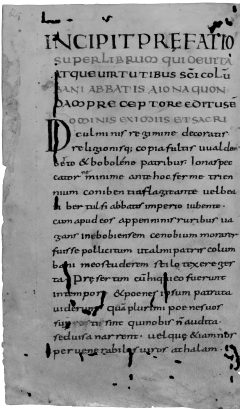 INCIPIT PREFATIO
SUPER LIBRUM QUI DE VITA
ATQUE VIRTUTIBUS SCI COLŪ
BANI ABBATIS A IONA QUON
DAM PRECEPTORE EDITUS E
DOMINIS EXIMIIS ET SACRI
Dculminis regimine decoratis
religionisq; copia fultis uualde
berto & boboleno patribus Ionas pec
cator minime ante hoc ferme trien
nium conibentia flagitante uel bea
ti bertulfi abbatis imperio iubente
cum apud eos appenninis ruribus ua
gans in ebobiensem cenobium morarer
fuisse pollicitum ut almi patris colum
bani meo studerem stilo texere ges
ta Presertim cū hi q; eo fuerunt
in tempore & poenes ipsum patrata
uiderunt quā plurimi poenes uos
superstitesint qui nobis n̄ audita
sed uisa narrent uel quę & iam nos
per venerabiles viros athalam